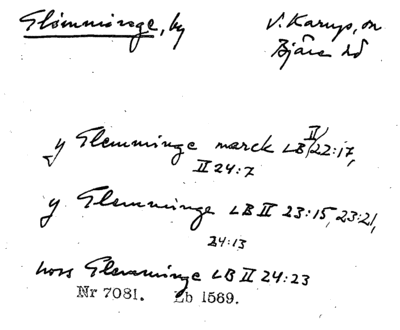 Glimminge, by V. Karups, sn
Bjäre hd
y Glemminge marck LB II 22:17,
II 24:7
y Glemminge LB II 23:15, 23:21,
24:13
hoss Glemminge LB II 24:23
Nr 7081. Lb 1569.